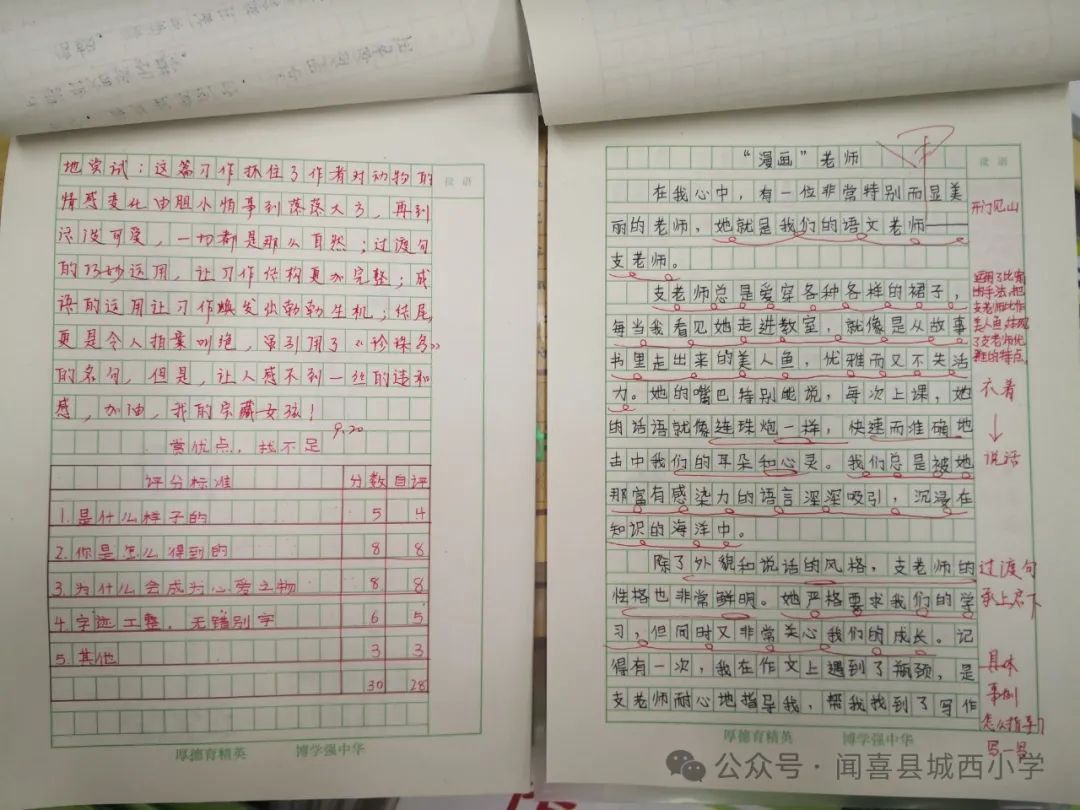 地尝试:这篇习作抓住了作者对动物的
情感变化由胆小怕事到落落大方,再到
活泼可爱,一切都是那么自然;过渡句
的巧妙运用,让习作结构更加完整;成
语的运用让习作焕发出勃勃生机;结尾
更是令人拍案叫绝,虽引用了《珍珠鸟》
的名句,但是,让人感不到一丝的违和
感,加油,我的宝藏女孩!
9.20
赏优点,找不足
评分标准 分数 自评
1.是什么样子的 5 4
2.你是怎么得到的 8 8
3.为什么会成为心爱之物 8 8
4.字迹工整,无错别字 6 5
5.其他 3 3
30 28
厚德育精英 博学强中华
批语
“漫画”老师
在我心中,有一位非常特别而显美
丽的老师,她就是我们的语文老师——
支老师。
支老师总是爱穿各种各样的裙子,
每当我看见她走进教室,就像是从故事
书里走出来的美人鱼,优雅而又不失活
力。她的嘴巴特别能说,每次上课,她
的话语就像连珠炮一样,快速而准确地
击中我们的耳朵和心灵。我们总是被她
那富有感染力的语言深深吸引,沉浸在
知识的海洋中。
除了外貌和说话的风格,支老师的
性格也非常鲜明。她严格要求我们的学
习,但同时又非常关心我们的成长。记
得有一次,我在作文上遇到了瓶颈,是
支老师耐心地指导我,帮我找到了写作
批语
开门见山
运用了比喻
的手法,把
支老师比作
美人鱼,体现
了支老师优
雅的特点。
衣着
↓
说话
过渡句
承上启下
具体
事例
怎么指导?
写一写
厚德育精英 博学强中华
公众号·闻喜县城西小学